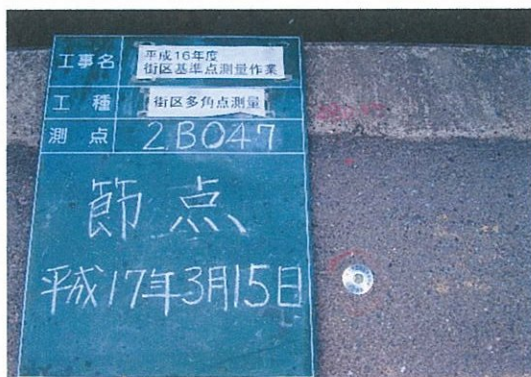 工事名
平成16年度
街区基準点測量作業
工種
街区多角点測量
測点
2B047
節点
平成17年3月15日